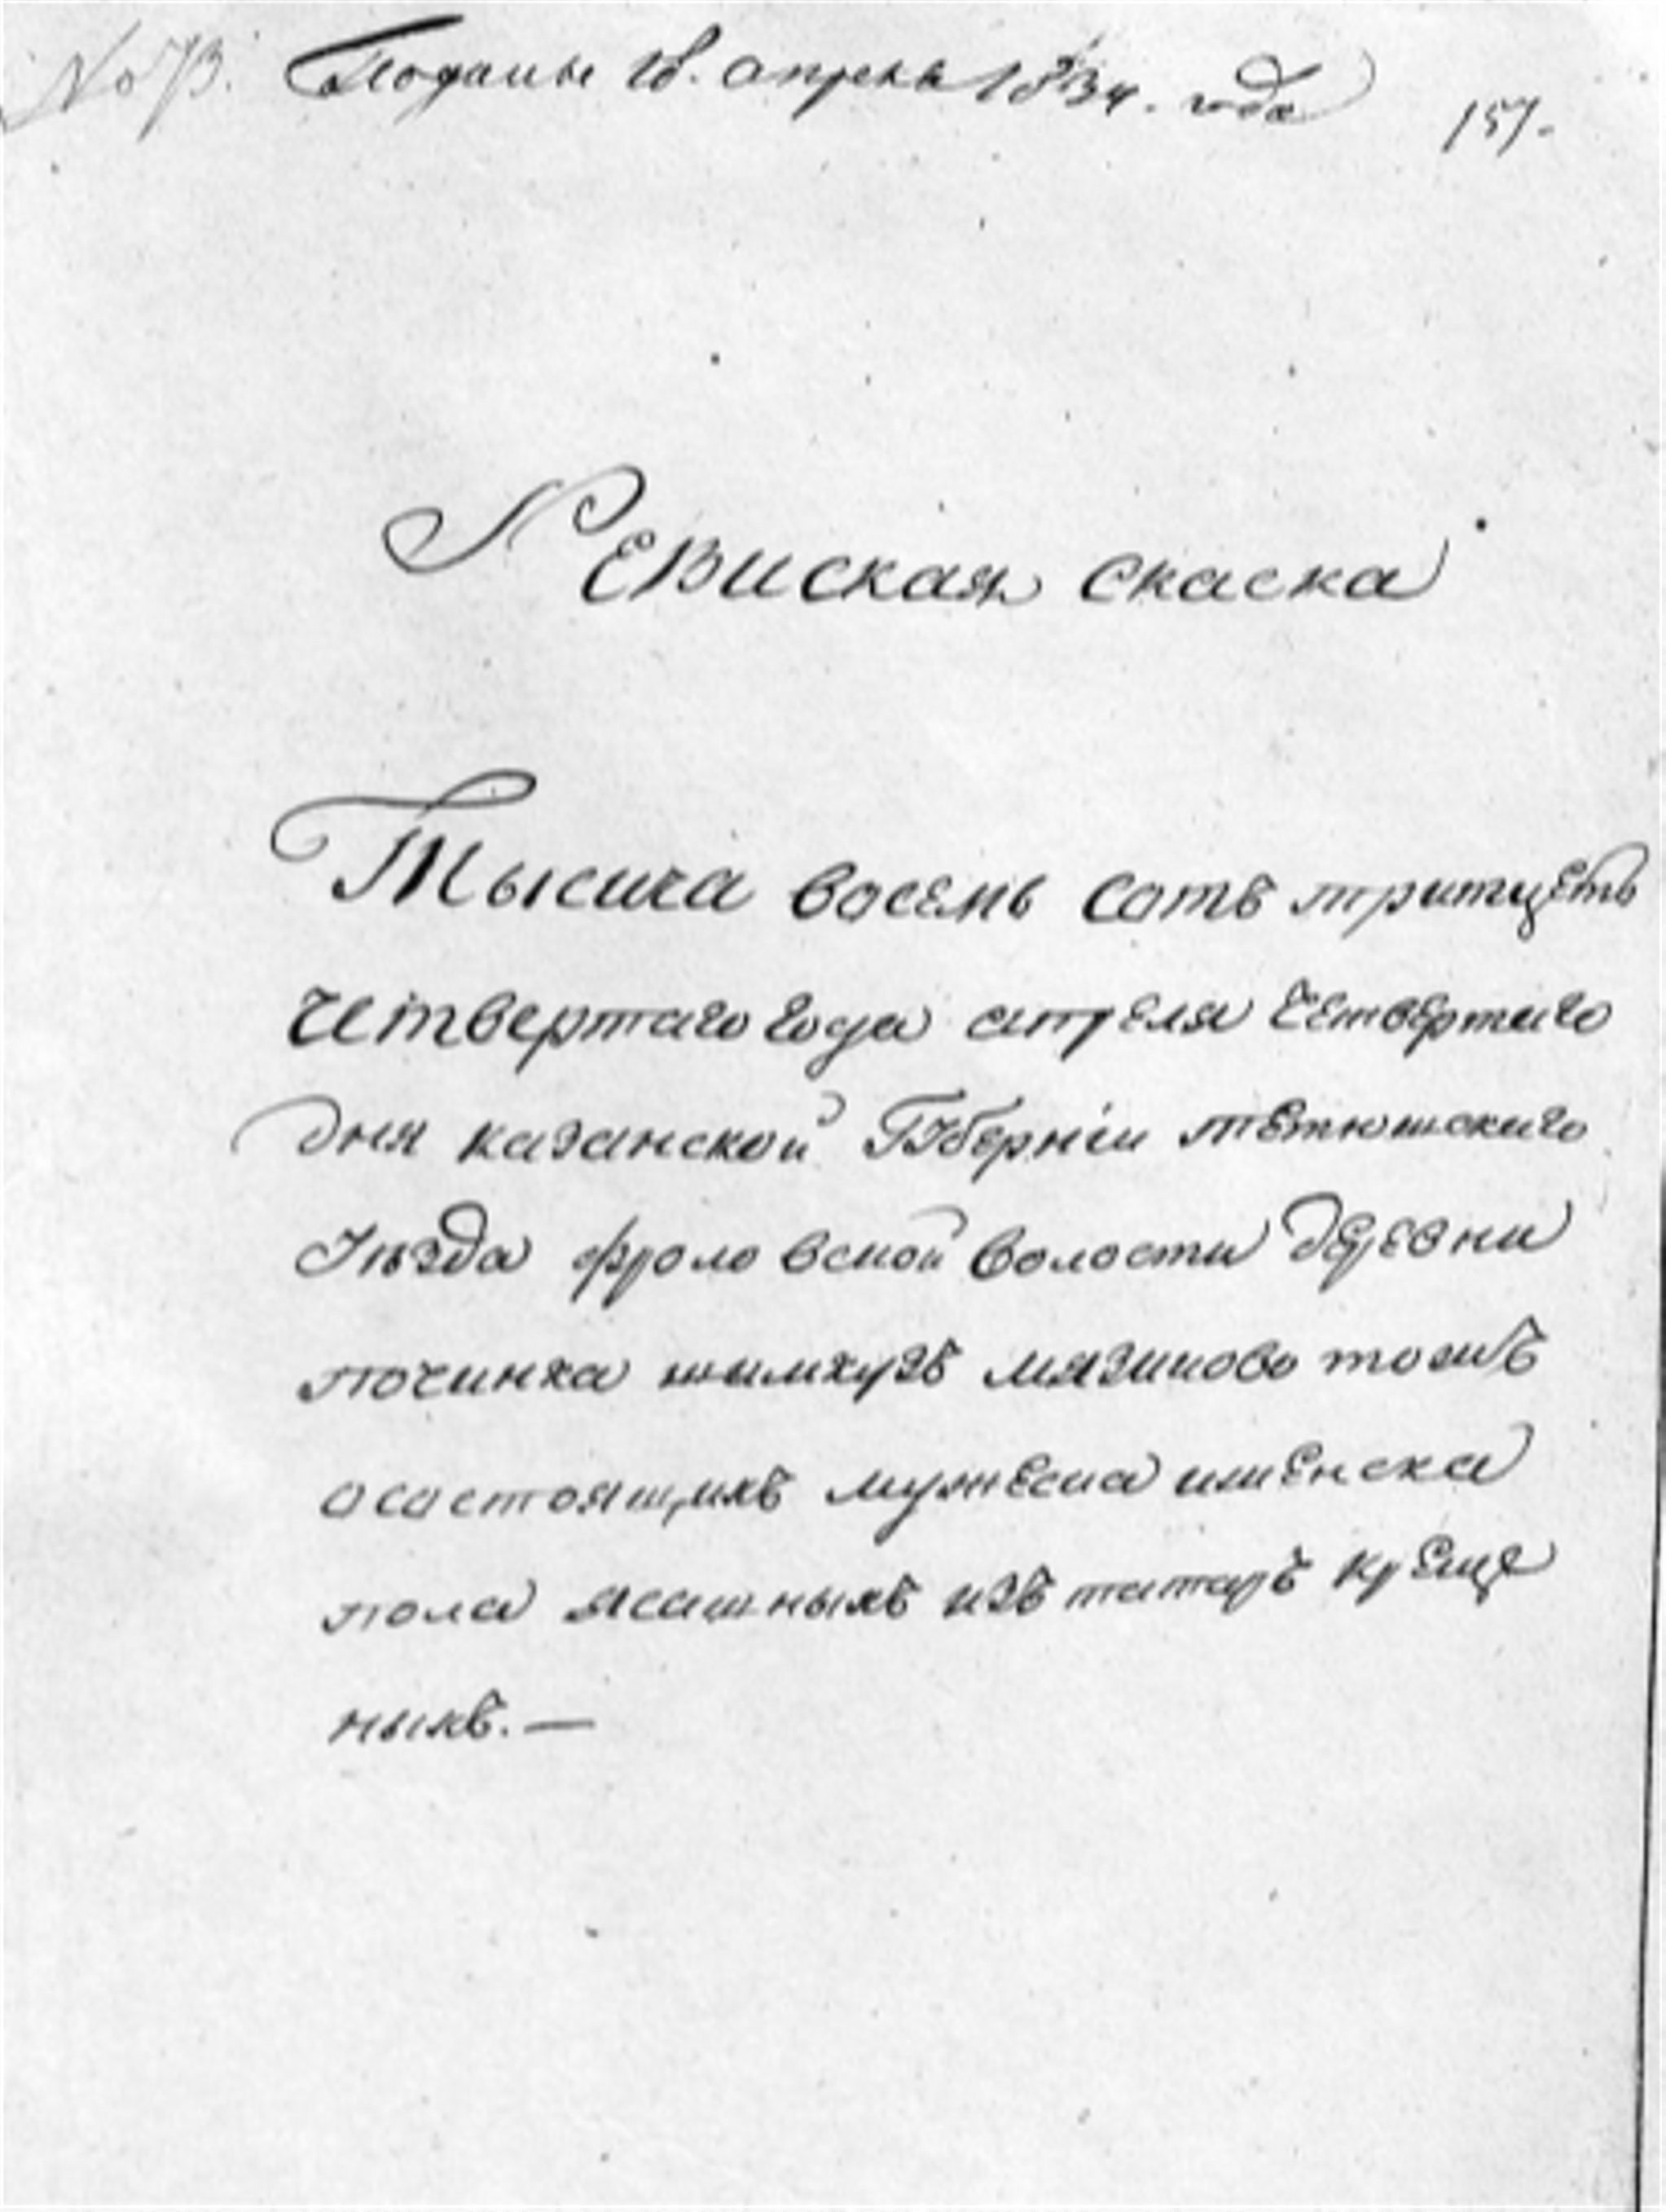 No 73. Поданы 18. апреля 1834. года 157.
Ревиская скаска
Тысеча восемь сотъ тритцеть
четвертаго года апреля четвертаго
дня казанской Губерніи тетюшскаго
Уѣзда фроловской волости деревни
починка мязиново тожъ
осостоящихъ мужеска иженска
пола ясашныхъ изъ татаръ креще
ныхъ.—